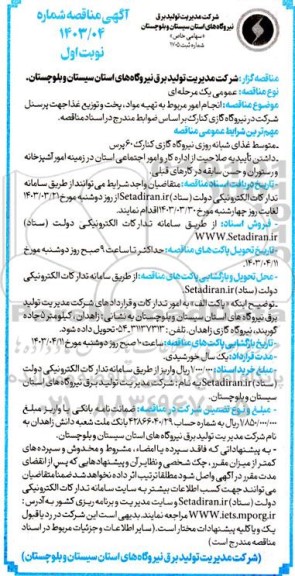 شرکت مدیریت تولید برق
نیروگاه‌های استان سیستان و بلوچستان
«سهامی خاص»
شماره ثبت ۱۷۰۵
آگهی مناقصه شماره
۱۴۰۳/۰۴
نوبت اول
مناقصه گزار: شرکت مدیریت تولید برق نیروگاه‌های استان سیستان و بلوچستان.
نوع مناقصه: عمومی یک مرحله‌ای
موضوع مناقصه: انجام امور مربوط به تهیه مواد، پخت و توزیع غذا جهت پرسنل
شرکت در نیروگاه گازی کنارک بر اساس ضوابط مندرج در اسناد مناقصه.
مهم‌ترین شرایط عمومی مناقصه
_متوسط غذای شبانه روزی نیروگاه گازی کنارک ۶۰ پرس
_داشتن تأییدیه صلاحیت از اداره کار و امور اجتماعی استان در زمینه امور آشپزخانه
و رستوران و حسن سابقه در کارهای قبلی
-تاریخ دریافت اسناد مناقصه: متقاضیان واجد شرایط می توانند از طریق سامانه
تدارکات الکترونیکی دولت (ستاد) Setadiran.ir از روز دوشنبه مورخ ۱۴۰۳/۰۳/۲۱
لغایت روز چهارشنبه مورخ ۱۴۰۳/۰۳/۳۰ اقدام نمایند.
- فروش اسناد: از طریق سامانه تدارکات الکترونیکی دولت (ستاد)
WWW.Setadiran.ir
-تاریخ تحویل پاکت‌های مناقصه: حداکثر تا ساعت ۹ صبح روز دوشنبه مورخ
۱۴۰۳/۰۴/۱۱.
- محل تحویل و بازگشایی پاکت‌های مناقصه: از طریق سامانه تدارکات الکترونیکی
دولت (ستاد) Setadiran.ir
_توضیح اینکه «پاکت الف» به امور تدارکات و قراردادهای شرکت مدیریت تولید
برق نیروگاه های استان سیستان و بلوچستان به نشانی: زاهدان، کیلومتر ۵ جاده
گوربند، نیروگاه گازی زاهدان، تلفن: ۳۱۱۳۷۳۱۳-۰۵۴ تحویل داده شود.
-تاریخ بازگشایی پاکت‌های مناقصه: ساعت ۱۰ صبح روز دوشنبه مورخ ۱۴۰۳/۰۴/۱۱
-مدت قرارداد: یک سال خورشیدی.
-مبلغ خرید اسناد: ۱/۰۰۰/۰۰۰ ریال واریز از طریق سامانه تدارکات الکترونیکی دولت
(ستاد) Setadiran.ir به نام: شرکت مدیریت تولید برق نیروگاه های استان
سیستان و بلوچستان.
- مبلغ و نوع تضمین شرکت در مناقصه: ضمانت نامه بانکی یا واریز مبلغ
ریال به شماره حساب بانک ملت شعبه دانش زاهدان به
نام شرکت مدیریت تولید برق نیروگاه های استان سیستان و بلوچستان.
- به پیشنهاداتی که فاقد سپرده یا امضاء، مشروط و مخدوش و سپرده های
کمتر از میزان مقرر، چک شخصی و نظایر آن و پیشنهادهایی که پس از انقضای
مدت مقرر در آگهی واصل شود مطلقا ترتیب اثر داده نخواهد شد ضمنا متقاضیان
می توانند جهت کسب اطلاعات بیشتر به سایت سامانه تدارکات الکترونیکی
دولت (ستاد) Setadiran.ir و سایت مدیریت و برنامه ریزی کشور به آدرس:
WWW.iets.mporg.ir مراجعه نمایند. بدیهی است این شرکت در رد یا قبول
یک و یا کلیه پیشنهادات مختار است. (سایر اطلاعات و جزئیات مربوط در اسناد
مناقصه مندرج است)
(شرکت مدیریت تولید برق نیروگاه های استان سیستان و بلوچستان)